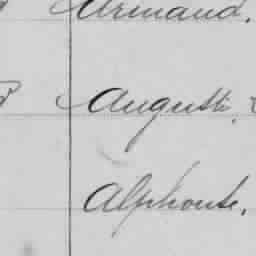 Armand.
Auguste.
Alphonse.